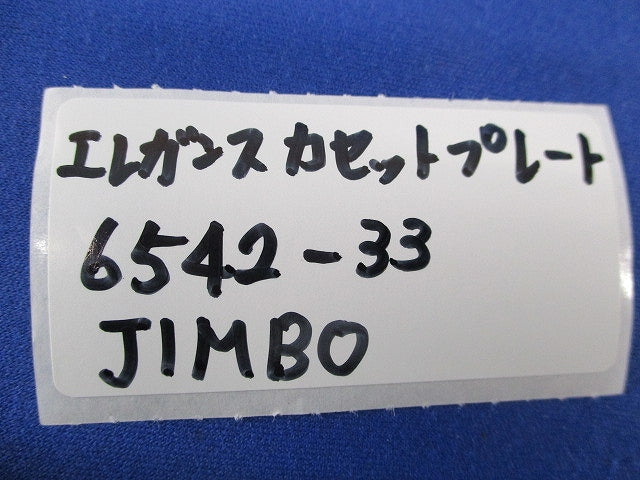 エレガンスカセットプレート
6542-33
JIMBO